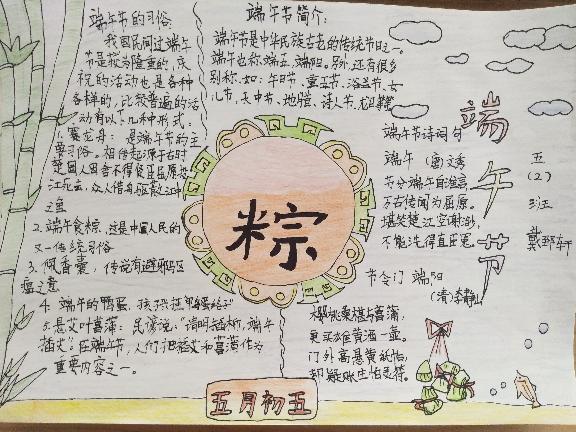 端午节的习俗:
我国民间过端午
节是较为隆重的,庆
祝的活动也是各种
各样的,比较普遍的活
动有以下几种形式:
1.赛龙舟:是端午节的主
要习俗。相传起源于古时
楚国人因舍不得贤臣屈原投
江死去,众人借舟驱散江中
之鱼
2.端午食粽,这是中国人民的
又一传统习俗
3.佩香囊,传说有避邪驱
瘟之意
4.端午的鸭蛋
5.悬艾叶菖蒲:民谚说:“清明插柳,端午
插艾”。在端午节,人们把插艾和菖蒲作为
重要内容之一。
端午节简介:
端午节是中华民族古老的传统节日之一。
端午也称端五,端阳。别外还有很多
别称,如:午日节、重五节、浴兰节、女
儿节、天中节、地腊、诗人节、龙日
粽
五月初五
端午节
端午节诗词句
端午 (唐)文秀
节分端午自谁言,
万古传闻为屈原,
堪笑楚江空渺渺,
不能洗得直臣冤。
五
(2)
班
节令门 端阳
(清·李静山)
樱桃桑椹与菖蒲,
更买雄黄酒一壶。
门外高悬黄纸帖,
却疑账主怕灵符。